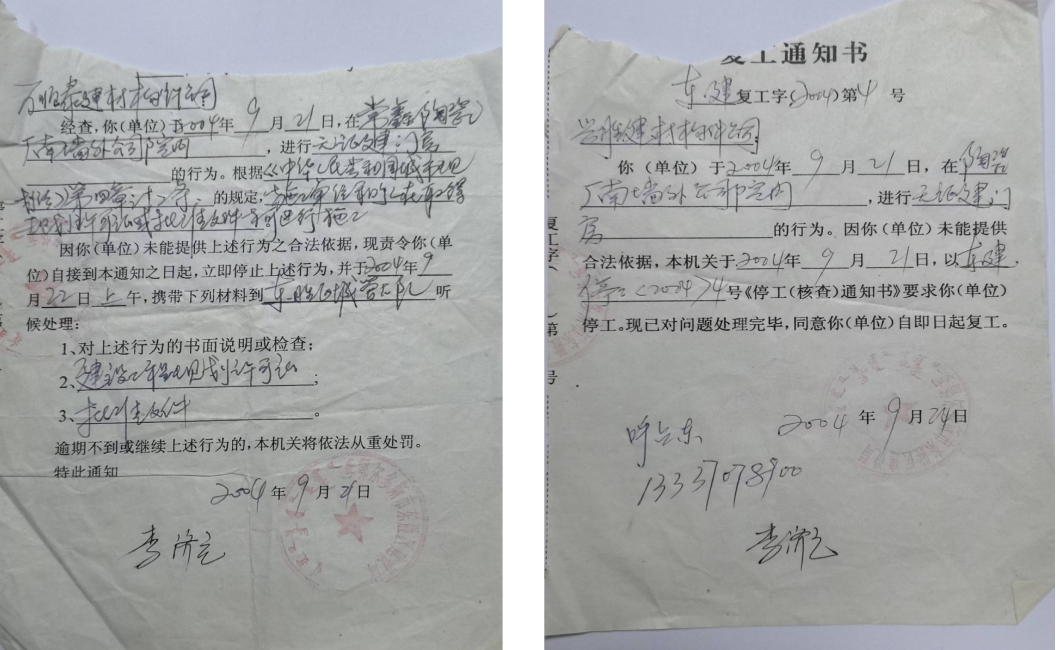 建材构件公司
经查，你（单位）于2004年9月21日，在常鑫陶瓷
厂南墙外公司院内，进行无证建门房
的行为。根据《中华人民共和国城市规
划法》第四章三十二条的规定，
建设工程规划许可证或其批准文件方可进行施工
因你（单位）未能提供上述行为之合法依据，现责令你（单
位）自接到本通知之日起，立即停止上述行为，并于2004年9
月22日上午，携带下列材料到东胜区城管大队听
候处理：
1、对上述行为的书面说明或检查；
2、建设工程规划许可证；
3、批准文件。
逾期不到或继续上述行为的，本机关将依法从重处罚。
特此通知
2004年9月21日
李济
复工通知书
东建复工字（2004）第4号
建材构件公司
你（单位）于2004年9月21日，在陶瓷
厂南墙外公司院内，进行无证建门
房的行为。因你（单位）未能提供
合法依据，本机关于2004年9月21日，以东建
停工〈2004〉4号《停工（核查）通知书》要求你（单位）
停工。现已对问题处理完毕，同意你（单位）自即日起复工。
2004年9月24日
13337078900
李济
复工字（
）第
号